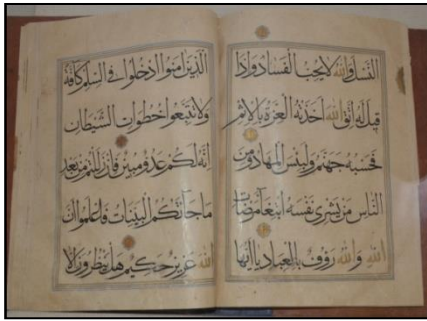 النسل والله لا يحب الفساد واذا
قيل له اتق الله اخذته العزة بالاثم
فحسبه جهنم ولبئس المهاد ومن
الناس من يشرى نفسه ابتغا مرضات
الله والله رؤوف بالعباد يا ايها
الذين امنوا ادخلوا فى السلم كافة
ولا تتبعوا خطوات الشيطان
انه لكم عدو مبين فان زللتم من بعد
ما جاتكم البينات فاعلموا ان
الله عزيز حكيم هل ينظرون الا